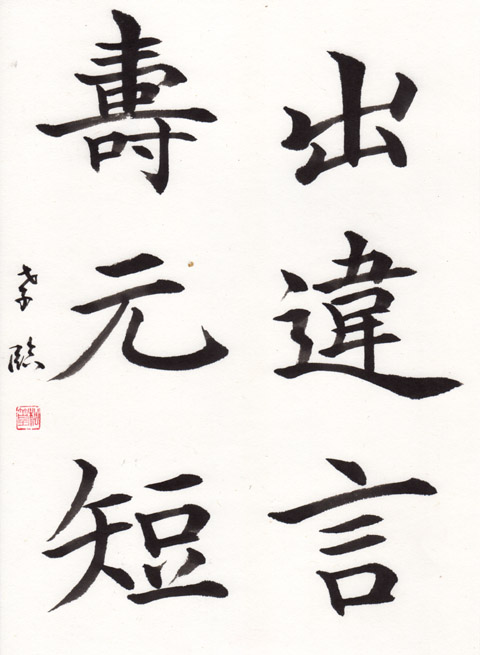 出違言
壽元短
臨